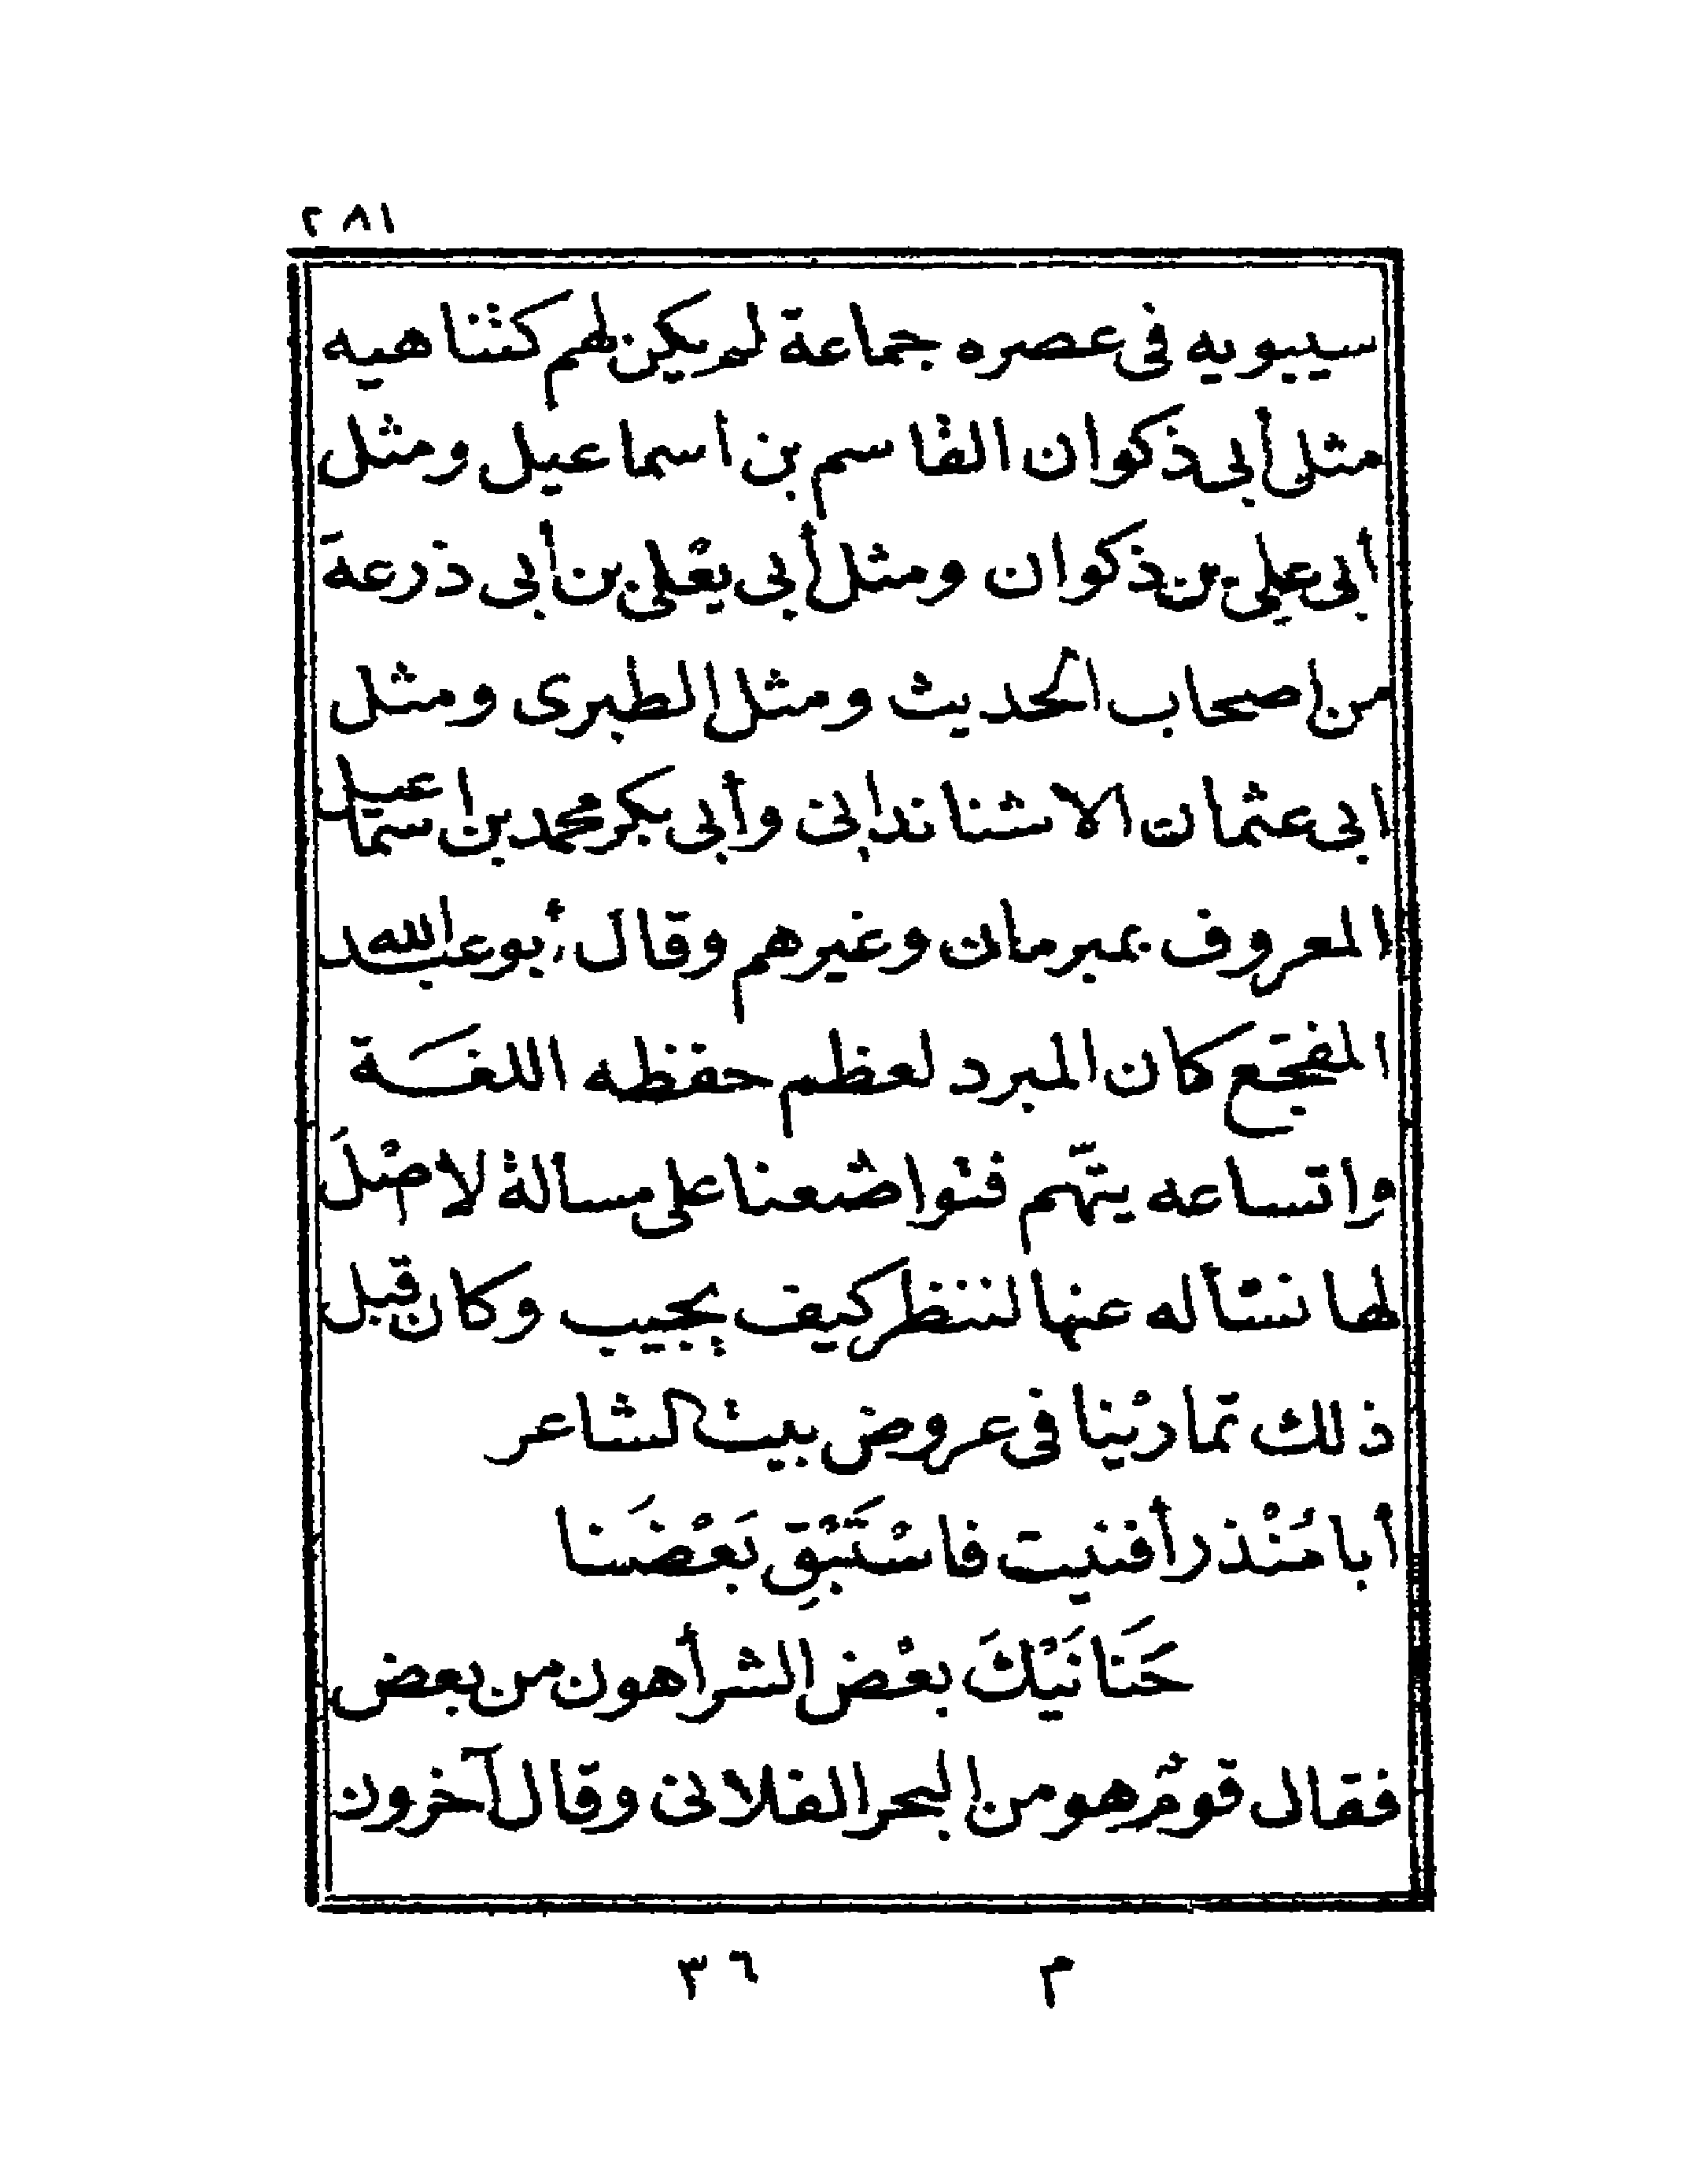 ٢٨١
سيبويه فى عصره جماعة لم يكن لهم كنباهيه
مثل أبى ذكوان القاسم بن اسماعيل ومثل
أبى على بن ذكوان ومثل أبى يعْلى بن أبى ذرعة
من اصحاب الحديث ومثل الطبرى ومثل
ابى عثمان الاشناندانى وأبى بكر محمد بن اسمٰعيل
المعروف بمبرمان وغيرهم وقال أبو عبد الله
المفجّع كان المبرد لعظم حفظه اللغَة
واتساعه يتّهم فتواضعنا على مسالة لا اصْلَ
لها نسْأله عنها لننظر كيف يجيب وكان قبل
ذلك تمارَيْنا فى عروض بيت الشاعر
أبا مُنْذر أفنيت فاسْتَبْقِ بَعْضَنا
حَنَانَيْكَ بعْض الشر أهون من بعض
فقال قومٌ هو من البحر الفلانى وقال آخرون
م ٣٦